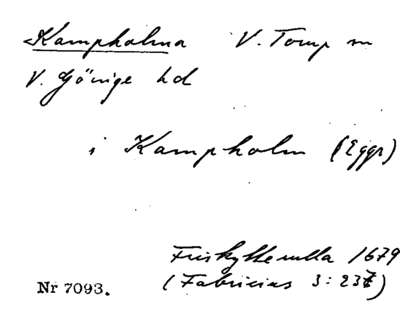 Kampholma V. Torup sn
V. Göinge hd
i Kampholm (Eggr)
Friskytterulla 1679
(Fabricius 3:237)
Nr 7093.